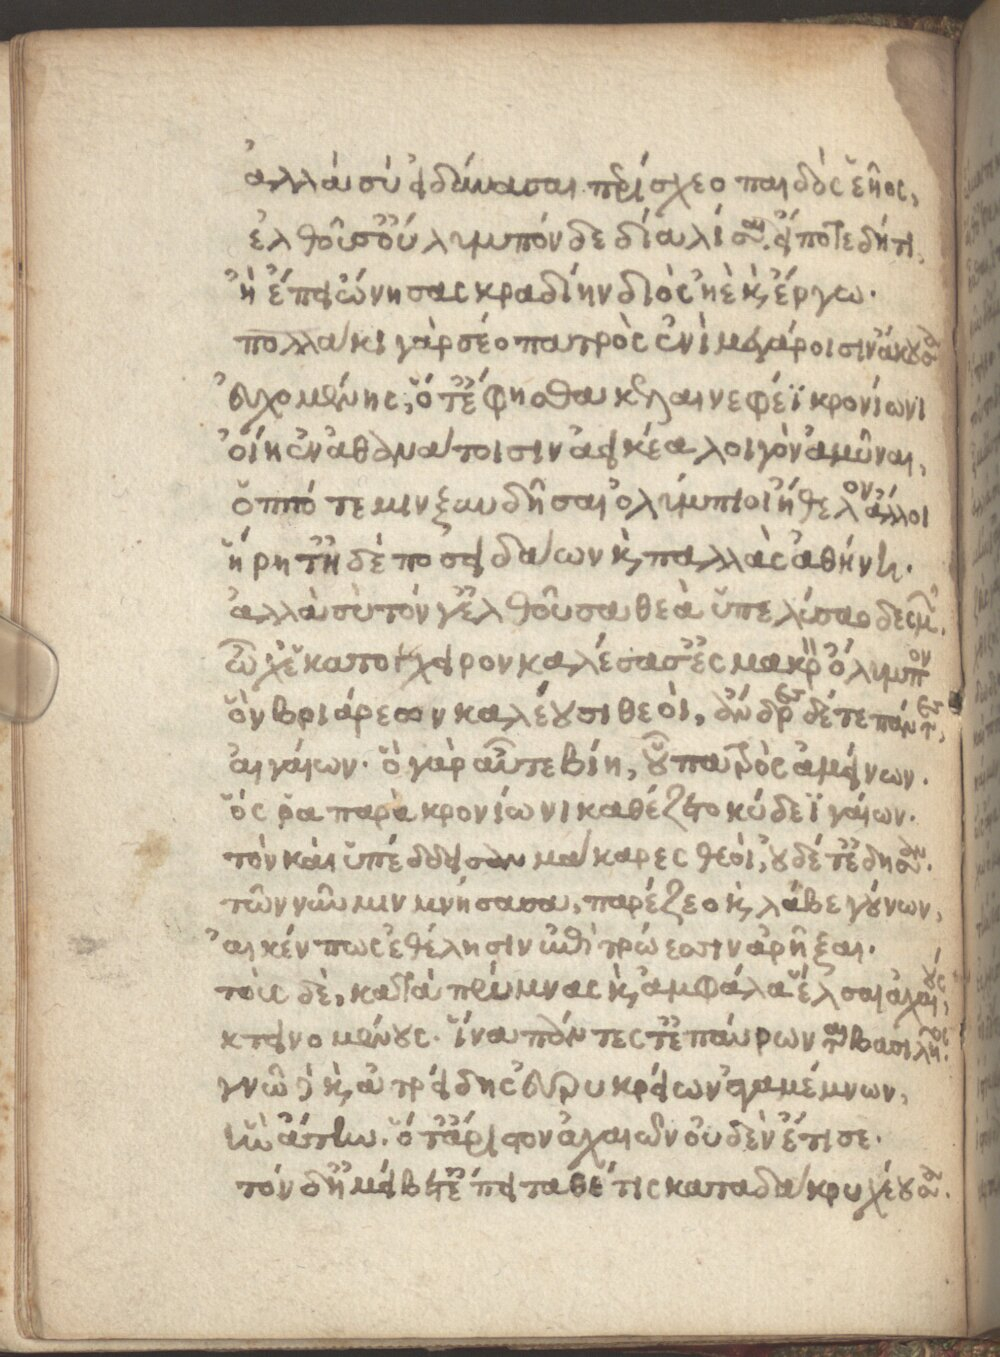 ἀλλὰ σὺ εἰ δύνασαι περίσχεο παιδὸς ἑῆος,
ἐλθοῦσ' οὔλυμπόνδε δία λίσαι. εἴποτε δήτι,
ἢ ἔπει ὤνησας κραδίην διὸς ἠὲ κ, ἔργω.
πολλάκι γὰρ σέο πατρὸς ἐνὶ μεγάροισιν ἄκουσα
εὐχομένης, ὅτ' ἔφησθα κελαινεφέϊ κρονίωνι
οἴη ἐν ἀθανάτοισιν ἀεικέα λοιγὸν ἀμῦναι,
ὅππότε μιν ξυνδῆσαι ὀλύμπιοι ἤθελον ἄλλοι
ἥρη τ' ἠδὲ ποσειδάων κ, παλλὰς ἀθήνη.
ἀλλὰ σὺ τόν γ' ἐλθοῦσα θεὰ ὑπελύσαο δεσμῶν.
ὦχ' ἑκατόγχειρον καλέσασ' ἐς μακρὸν ὄλυμπον
ὃν βριάρεων καλέουσι θεοὶ, ἄνδρες δέ τε πάντες,
αἰγαίων. ὁ γὰρ αὖτε βίη, οὗ πατρὸς ἀμείνων.
ὅς ῥα παρὰ κρονίωνι καθέζετο κύδεϊ γαίων.
τὸν καὶ ὑπέδδεισαν μάκαρες θεοὶ, οὐδέ τ' ἔδησαν.
τῶν νῦν μιν μνήσασα, παρέζεο κ, λάβε γούνων,
αἴ κέν πως ἐθέλησιν ἐπὶ τρώεσσιν ἀρῆξαι.
τοὺς δὲ, κατὰ πρύμνας κ, ἀμφ' ἅλα ἔλσαι ἀχαιούς,
κτεινομένους. ἵνα πάντες τ' ἐπαύρωνται βασιλῆος.
γνῶ δὲ κ, ἀτρείδης εὐρυκρείων ἀγαμέμνων,
ἣν ἄτην. ὅτ' ἄριστον ἀχαιῶν οὐδὲν ἔτισε.
τὸν δ' ἠμείβετ' ἔπειτα θέτις κατὰ δάκρυ χέουσα.